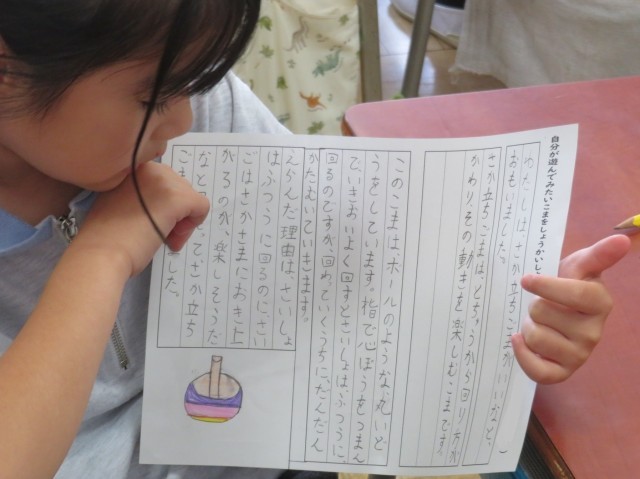 自分が遊んでみたいこまをしょうかいし
わたしは、さか立ちごまがいいかなと、
おもいました。
さか立ちごまは、とちゅうから回り方が
かわり、その動きを楽しむこまです。
このこまは、ボールのような丸いど
うをしています。指で心ぼうをつまん
で、いきおいよく回すとさいしょは、ふつうに、
回るのですが、回っていくうちに、だんだん
かたむいていきます。
えらんだ理由は、さいしょ
はふつうに回るのに、さい
ごはさかさまにおき上
がるのが、楽しそうだ
なと て、さか立ち
ごま した。